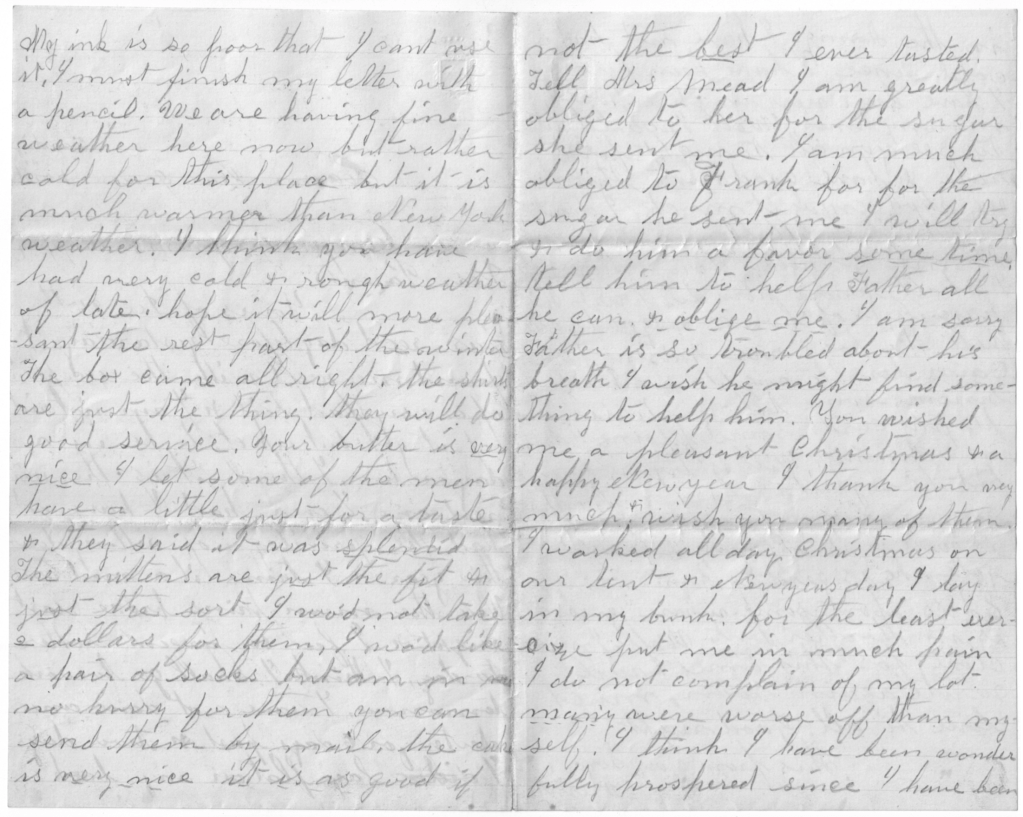 My ink is so poor that I cant use
it, I must finish my letter with
a pencil. We are having fine
weather here now but rather
cold for this place but it is
much warmer than New York
weather. I think you have
had very cold & rough weather
of late. hope it will more plea
-sant the rest part of the winter
The box came all right. the shirts
are just the thing. they will do
good service. Your butter is very
nice I let some of the men
have a little just for a taste
& they said it was splendid
The mittens are just the fit &
just the sort I wood not take
2 dollars for them, I wood like
a pair of socks but am in
no hurry for them you can
send them by mail. the cake
is very nice it is as good if
not the best I ever tasted.
Tell Mrs Mead I am greatly
obliged to her for the sugar
she sent me. I am much
obliged to Frank for for the
sugar he sent me I will try
& do him a favor some time.
tell him to help Father all
he can. & oblige me. I am sorry
Father is so troubled about his
breath I wish he might find some-
thing to help him. You wished
me a pleasant Christmas & a
happy New year I thank you very
much, & wish you many of them.
I worked all day Christmas on
our tent & New years day I lay
in my bunk. for the least exer-
cize put me in much pain
I do not complain of my lot.
many were worse off than my-
self. I think I have been wonder
fully prospered since I have been